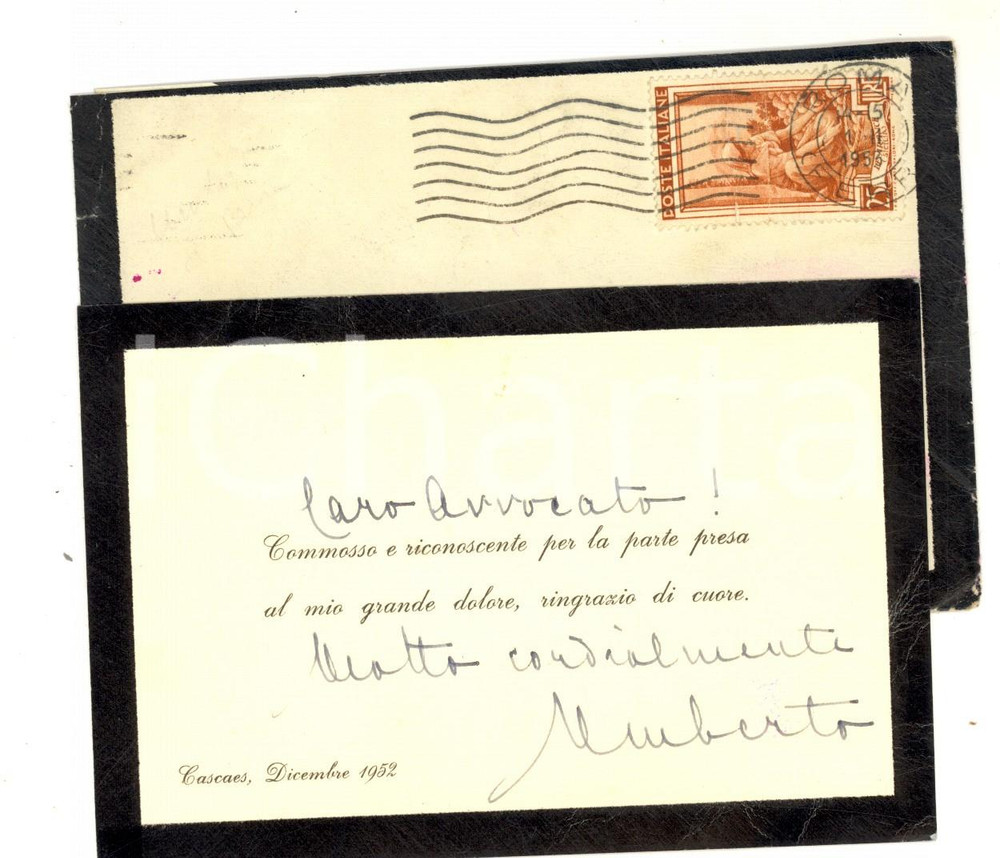 POSTE ITALIANE
LIRE
25
Caro Avvocato !
Commosso e riconoscente per la parte presa
al mio grande dolore, ringrazio di cuore.
Molto cordialmente
Umberto
Cascaes, Dicembre 1952
iCharta